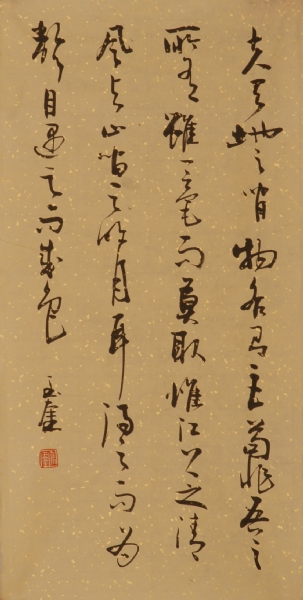 夫天地之間物各有主苟非吾之
所有雖一毫而莫取惟江上之清
風與山間之明月耳得之而為
聲目遇之而成色